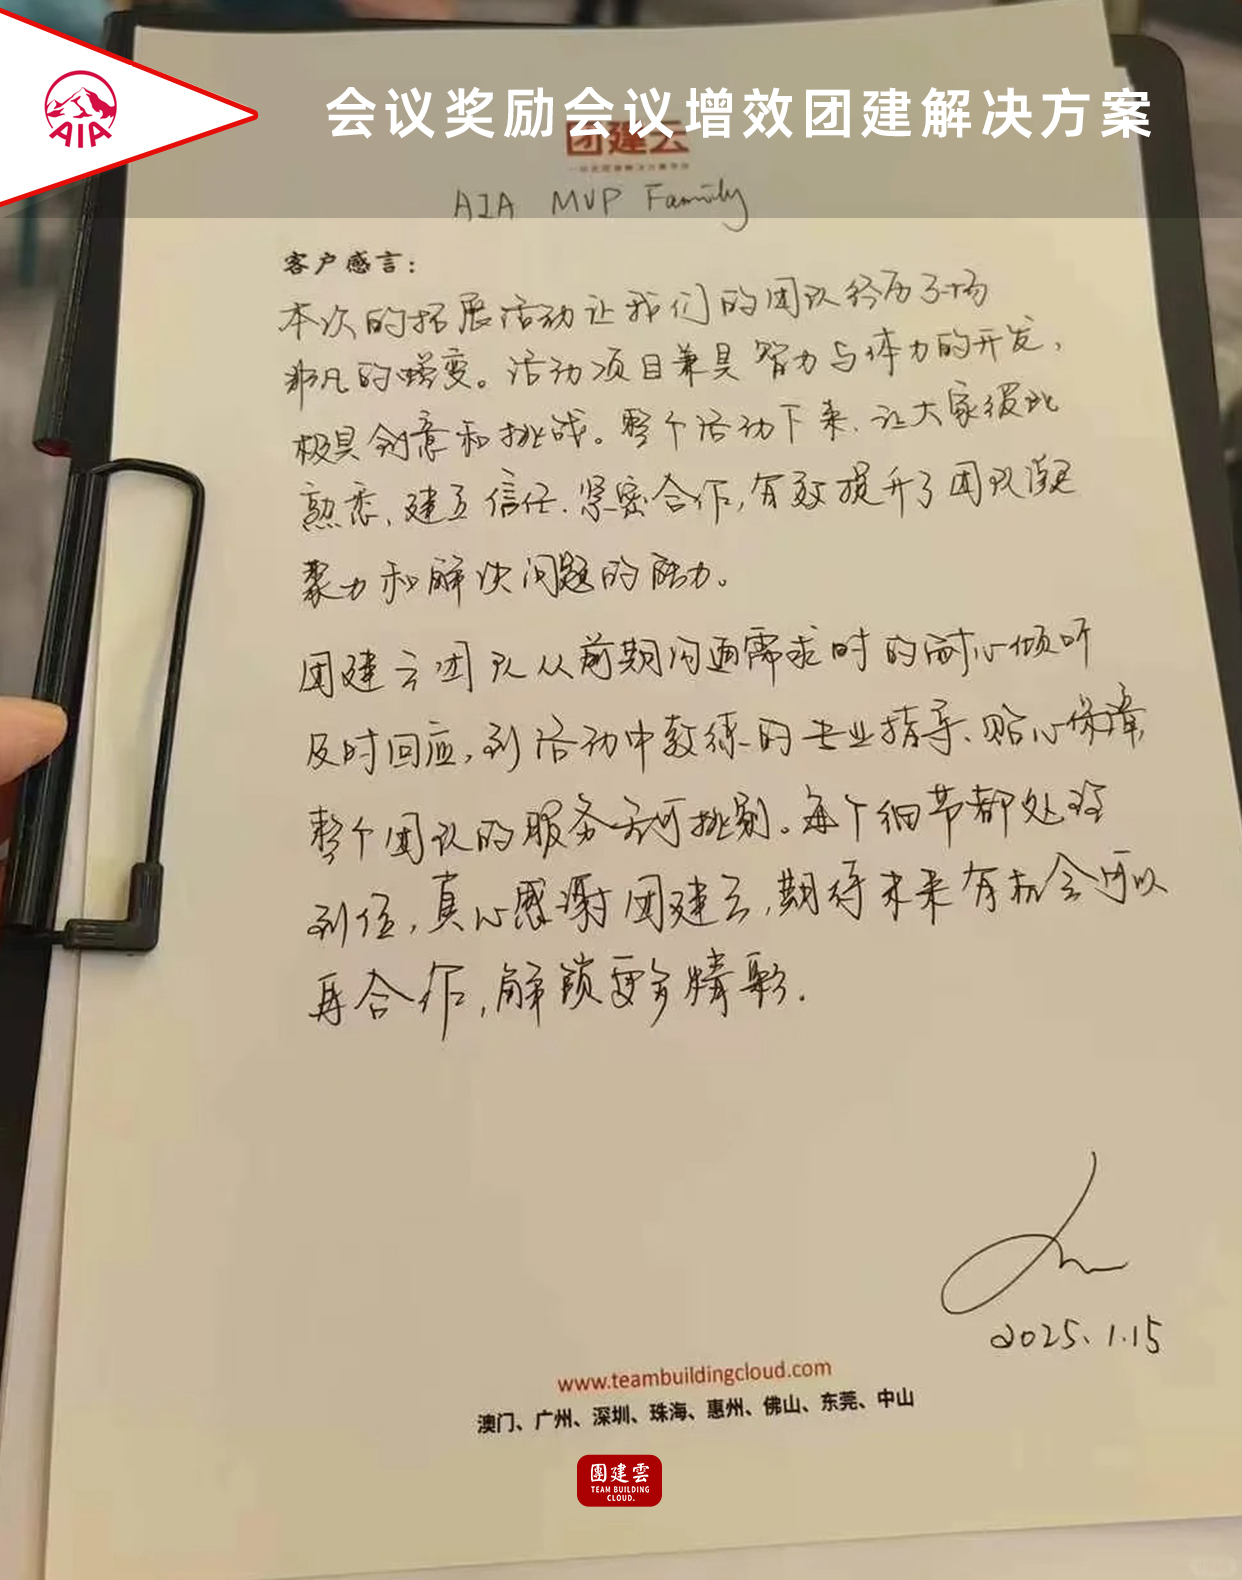 AIA
会议奖励会议增效团建解决方案
团建云
AIA MVP Family
客户感言：
本次的拓展活动让我们的团队经历了一场
非凡的蜕变。活动项目兼具智力与体力的开发，
极具创意和挑战。整个活动下来、让大家彼此
熟悉、建立信任、紧密合作，有效提升了团队凝
聚力和解决问题的能力。
团建云团队从前期沟通需求时的耐心倾听
及时回应，到活动中教练的专业指导、贴心保障，
整个团队的服务无可挑剔。每个细节都处理
到位，真心感谢团建云，期待未来有机会可以
再合作，解锁更多精彩.
2025.1.15
www.teambuildingcloud.com
澳门、广州、深圳、珠海、惠州、佛山、东莞、中山
團建雲
TEAM BUILDING
CLOUD.